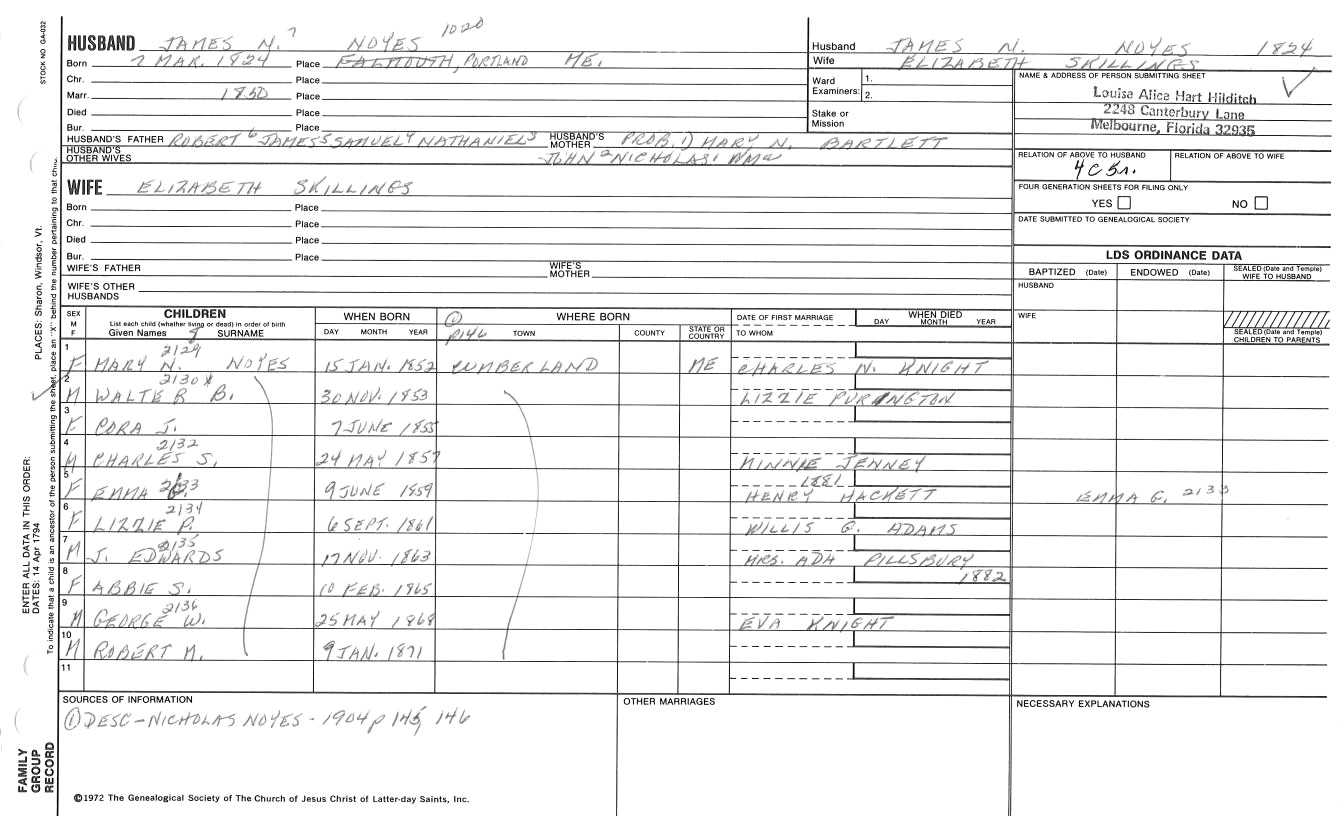 STOCK NO. GA-032
HUSBAND JAMES N. 7 NOYES 1020
Born 7 MAR. 1824 Place FALMOUTH, PORTLAND ME.
Chr. Place
Marr. 1850 Place
Died Place
Bur. Place
HUSBAND'S FATHER ROBERT 6 JAMES 5 SAMUEL 4 NATHANIEL 3 HUSBAND'S MOTHER PROB. 1) MARY N. BARTLETT
HUSBAND'S OTHER WIVES JOHN 2 NICHOLAS 1 WMa
Husband JAMES N. NOYES 1824
Wife ELIZABETH SKILLINGS
Ward Examiners: 1.
2.
Stake or Mission
NAME & ADDRESS OF PERSON SUBMITTING SHEET
Louisa Alice Hart Hilditch
2248 Canterbury Lane
Melbourne, Florida 32935
RELATION OF ABOVE TO HUSBAND RELATION OF ABOVE TO WIFE
4C5r.
FOUR GENERATION SHEETS FOR FILING ONLY
YES NO
DATE SUBMITTED TO GENEALOGICAL SOCIETY
WIFE ELIZABETH SKILLINGS
Born Place
Chr. Place
Died Place
Bur. Place
WIFE'S FATHER WIFE'S MOTHER
WIFE'S OTHER HUSBANDS
LDS ORDINANCE DATA
BAPTIZED (Date) ENDOWED (Date) SEALED (Date and Temple) WIFE TO HUSBAND
HUSBAND
WIFE
SEALED (Date and Temple) CHILDREN TO PARENTS
SEX M F CHILDREN List each child (whether living or dead) in order of birth Given Names SURNAME
WHEN BORN DAY MONTH YEAR
① p146 WHERE BORN TOWN COUNTY STATE OR COUNTRY
DATE OF FIRST MARRIAGE TO WHOM
WHEN DIED DAY MONTH YEAR
1 F MARY N. 2129 NOYES 15 JAN. 1852 CUMBERLAND ME CHARLES N. KNIGHT
2 M WALTER B. 2130 x 30 NOV. 1853 LIZZIE PURRINGTON
3 F CORA J. 7 JUNE 1855
4 M CHARLES S. 2132 24 MAY 1857 MINNIE JENNEY
5 F EMMA G. 2133 9 JUNE 1859 1881 HENRY HACKETT EMMA G. 2133
6 F LIZZIE P. 2134 6 SEPT. 1861 WILLIS G. ADAMS
7 M J. EDWARDS 2135 17 NOV. 1863 MRS. ADA PILLSBURY
8 F ABBIE S. 10 FEB. 1865 1882
9 M GEORGE W. 2136 25 MAY 1868 EVA KNIGHT
10 M ROBERT M. 9 JAN. 1871
11
SOURCES OF INFORMATION
① DESC - NICHOLAS NOYES - 1904 p 145, 146
OTHER MARRIAGES
NECESSARY EXPLANATIONS
©1972 The Genealogical Society of The Church of Jesus Christ of Latter-day Saints, Inc.
FAMILY GROUP RECORD
ENTER ALL DATA IN THIS ORDER:
DATES: 14 Apr 1794 PLACES: Sharon, Windsor, Vt.
To indicate that a child is an ancestor of the person submitting the sheet, place an "X" behind the number pertaining to that child.